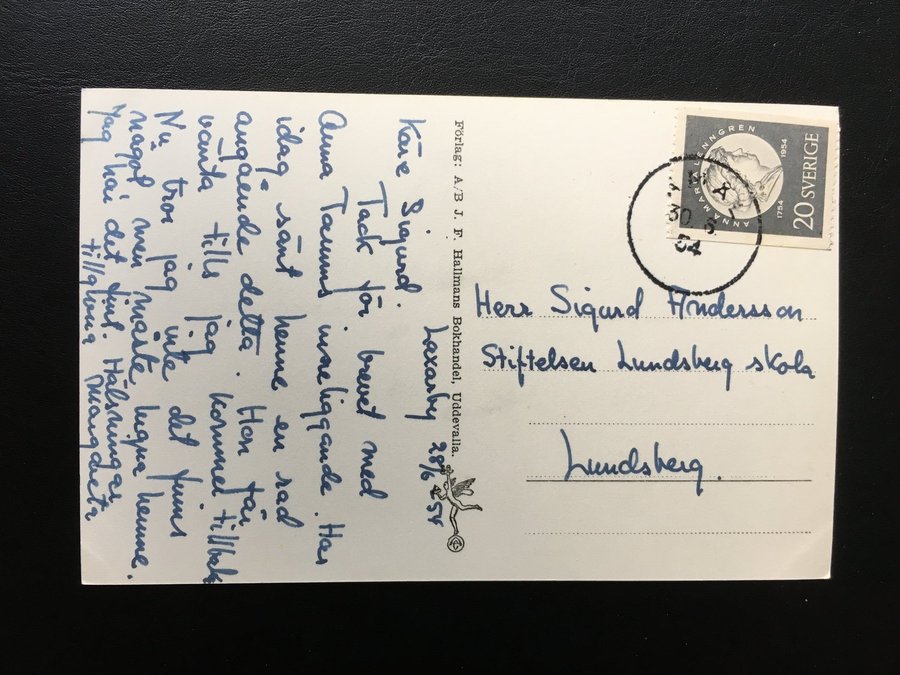 Laxarby 28/6 -54
Käre Sigurd.
Tack för brevet med
Anna Tamms inneliggande. Har
idag sänt henne en rad
angående detta. Hon får
vänta tills jag kommer tillbak
Nu tror jag inte det finns
något men måste lugna henne.
Jag har det fint. Hälsningar
tillgivna Margareta
Förlag: A/B J. F. Hallmans Bokhandel, Uddevalla.
ANNA MARIA LENNGREN
1754 1954
20 SVERIGE
30. 6.
54
Herr Sigurd Andersson
Stiftelsen Lundsberg skola
Lundsberg.